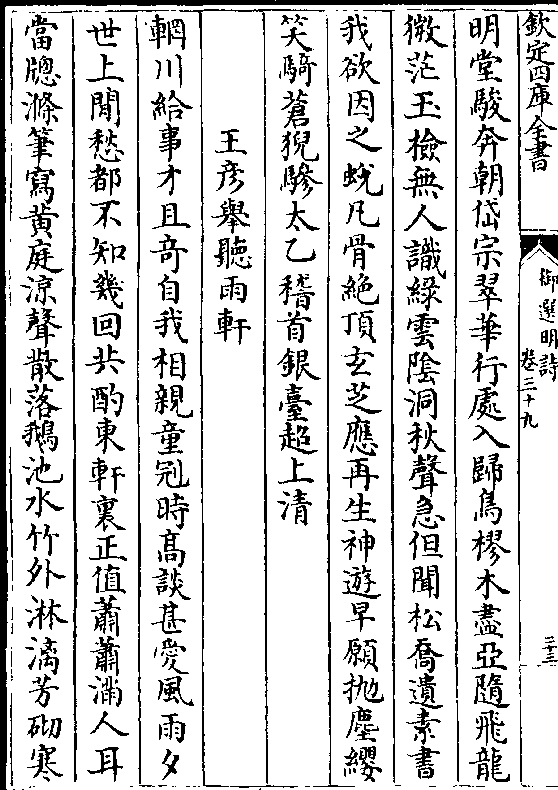 欽定四庫全書
御選明詩
卷三十九
二十三
明堂駿奔朝岱宗翠華行處入歸鳥樛木盡亞隨飛龍
微茫玉檢無人識綠雲陰洞秋聲急但聞松喬遺素書
我欲因之蛻凡骨絶頂玄芝應再生神遊早願抛塵纓
笑騎蒼猊驂太乙稽首銀臺超上清
王彥舉聽雨軒
輞川給事才且竒自我相親童冠時高談甚愛風雨夕
世上閒愁都不知幾回共酌東軒裏正值蕭蕭滿人耳
當牕滌筆寫黄庭凉聲散落鵝池水竹外淋漓芳砌寒